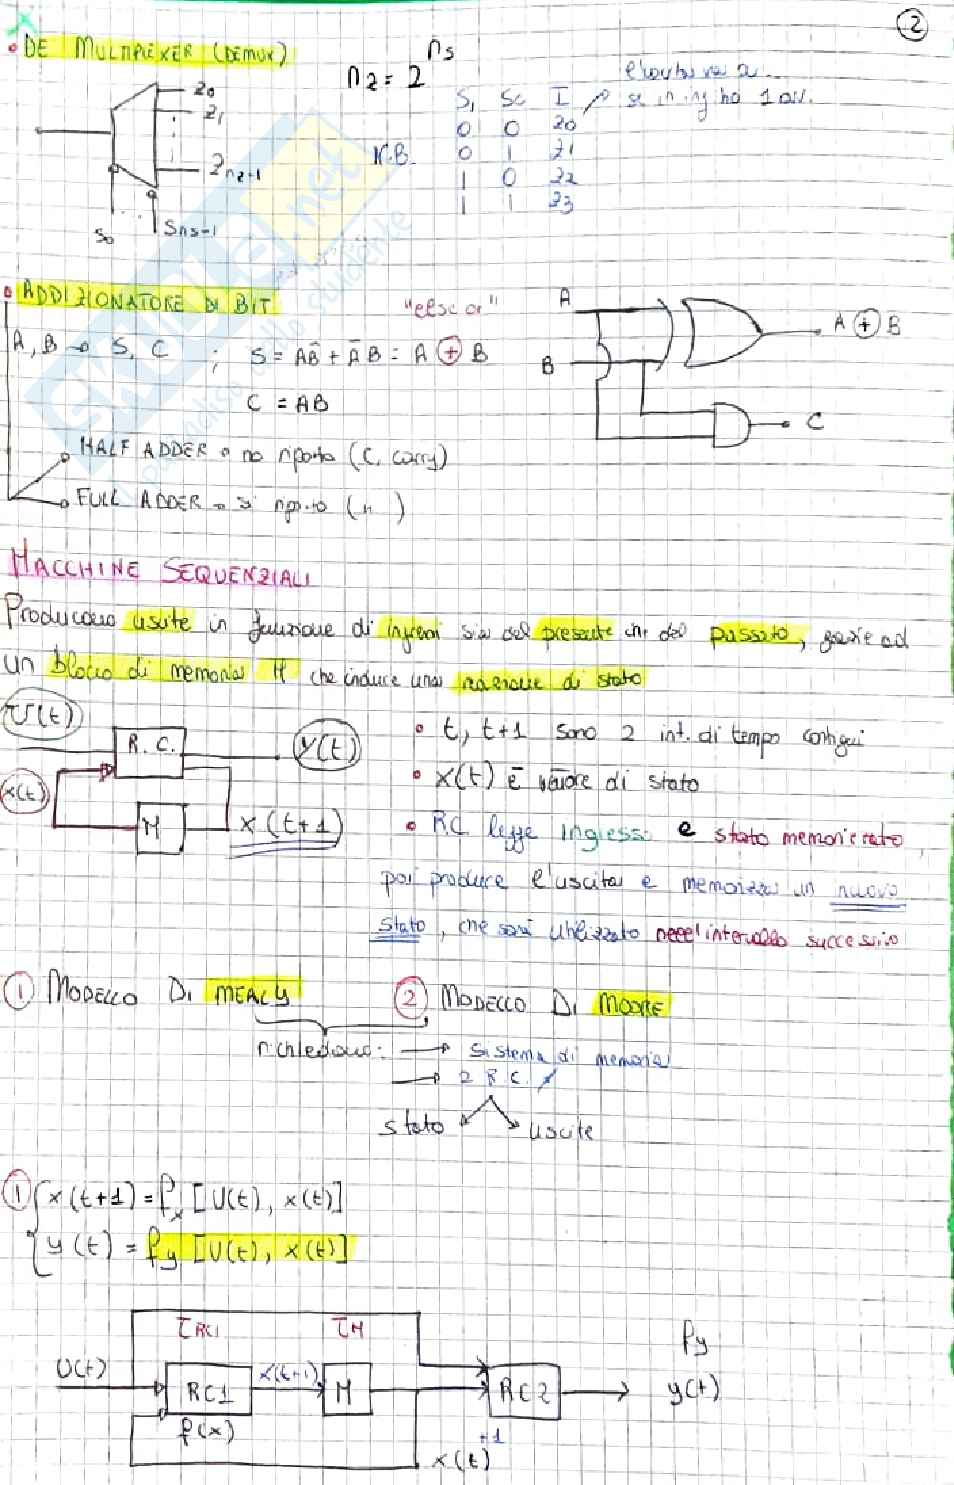 2
• DE MULTIPLEXER (DEMUX)
n2 = 2^ns
z0
z1
z nz-1
S0
Sns-1
l'uscita va a...
se in ing ho 1 ...
N.B.
S1 S0 I
0 0 z0
0 1 z1
1 0 z2
1 1 z3
• ADDIZIONATORE DI BIT
"elsc or"
A, B → S, C ; S = AB̄ + ĀB = A ⊕ B
C = AB
A
B
A ⊕ B
C
HALF ADDER → no riporto (C, carry)
FULL ADDER → si riporto (" )
MACCHINE SEQUENZIALI
Producono uscite in funzione di ingressi sia del presente che del passato, grazie ad
un blocco di memoria M che induce una reazione di stato
U(t)
R.C.
y(t)
x(t)
M
x(t+1)
• t, t+1 sono 2 int. di tempo contigui
• x(t) è valore di stato
• RC legge ingresso e stato memorizzato,
poi produce l'uscita e memorizza un nuovo
stato, che sarà utilizzato nell'intervallo successivo
① MODELLO DI MEALY
② MODELLO DI MOORE
richiedono: → sistema di memoria
→ 2 R.C.
stato
uscite
① { x(t+1) = fx [U(t), x(t)]
y(t) = fy [U(t), x(t)]
τRC1
τM
U(t)
RC1
x(t+1)
M
RC2
fy
y(t)
f(x)
+1
x(t)
SKUOLA.net
il paradiso dello studente